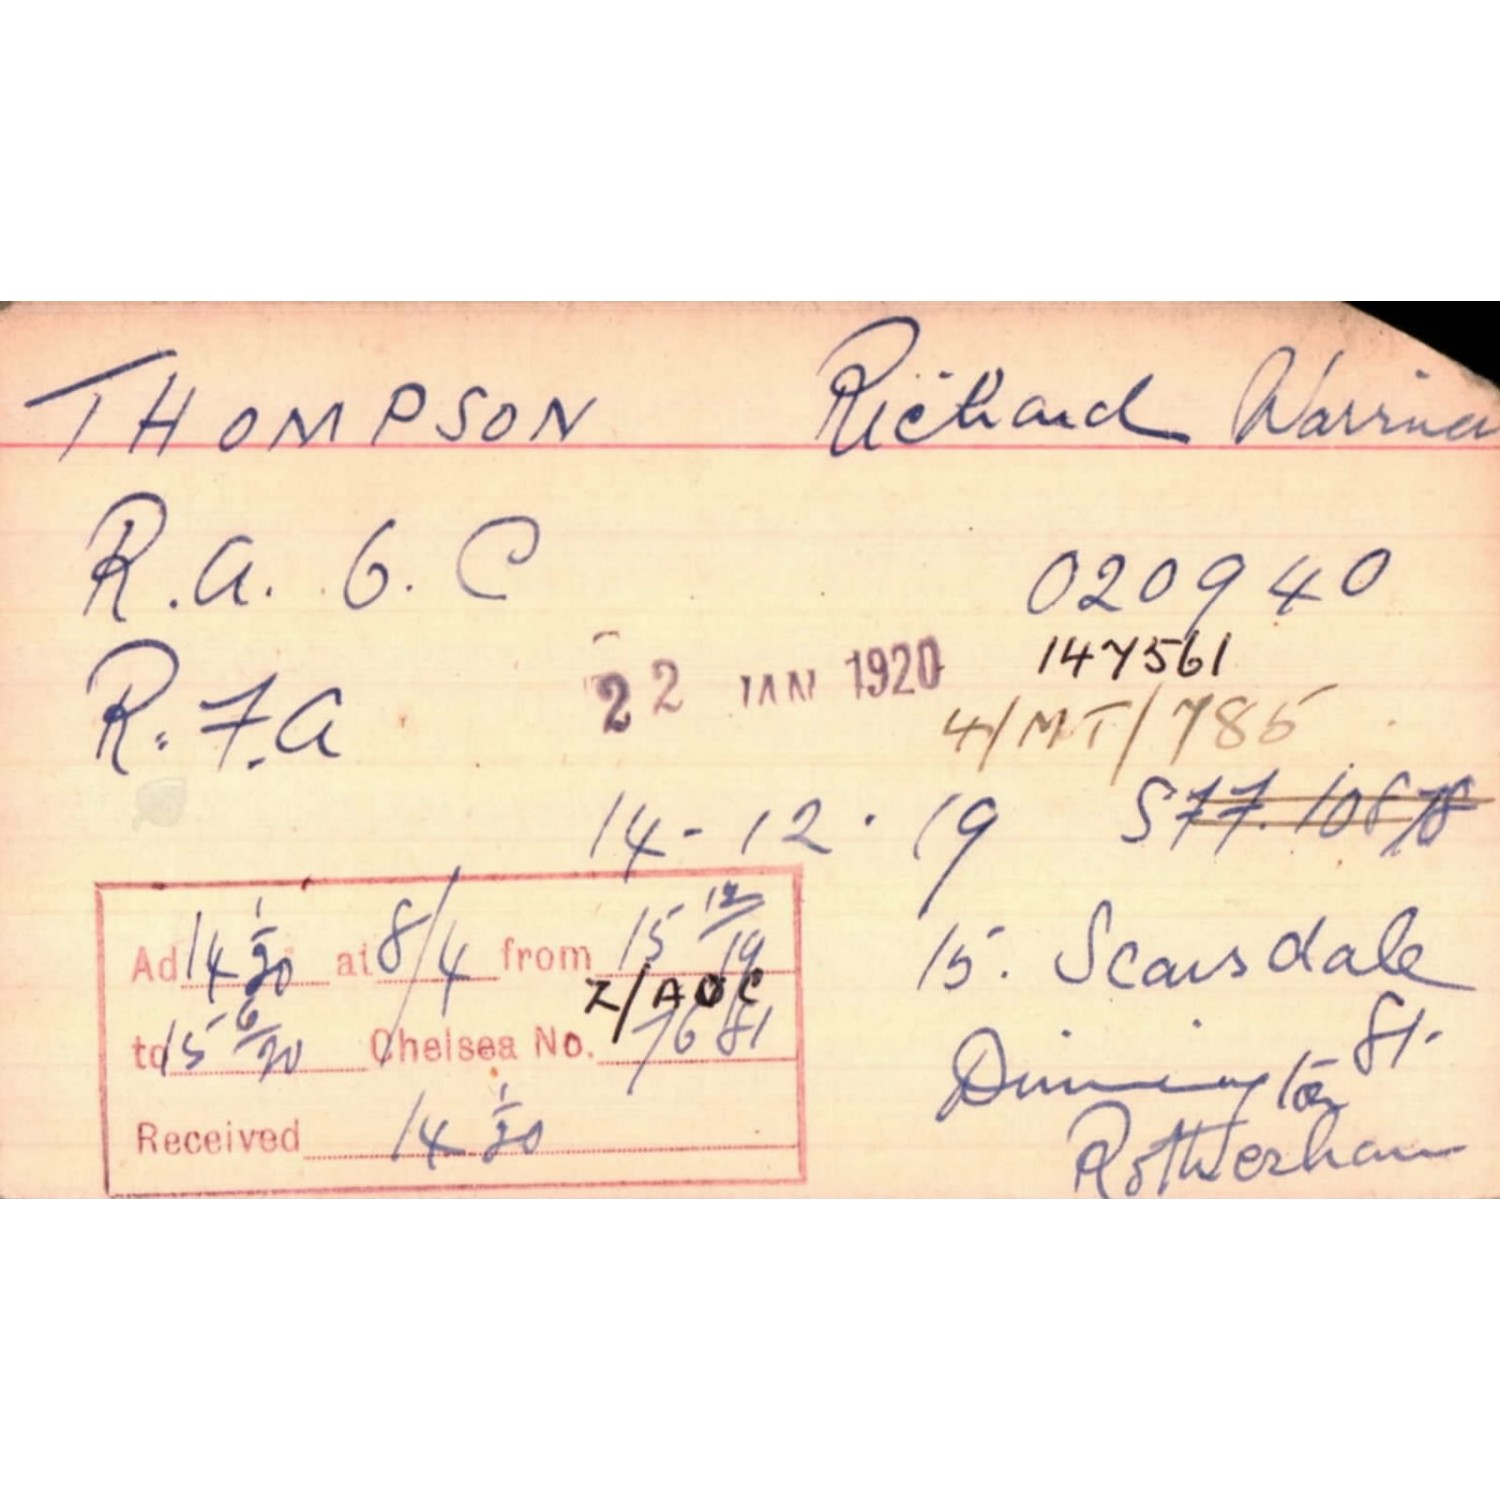 THOMPSON Richard Warriner
R.A.O.C 020940
147561
R.F.A 22 JAN 1920
4/MT/785
14-12.19 S77.10878
Ad 14 1/20 at 8/4 from 15 12/19
15. Scarsdale
Z/AOC
to 15 6/20 Chelsea No. 7681
St.
Dinnington
Received 14 1/20
Rotherham